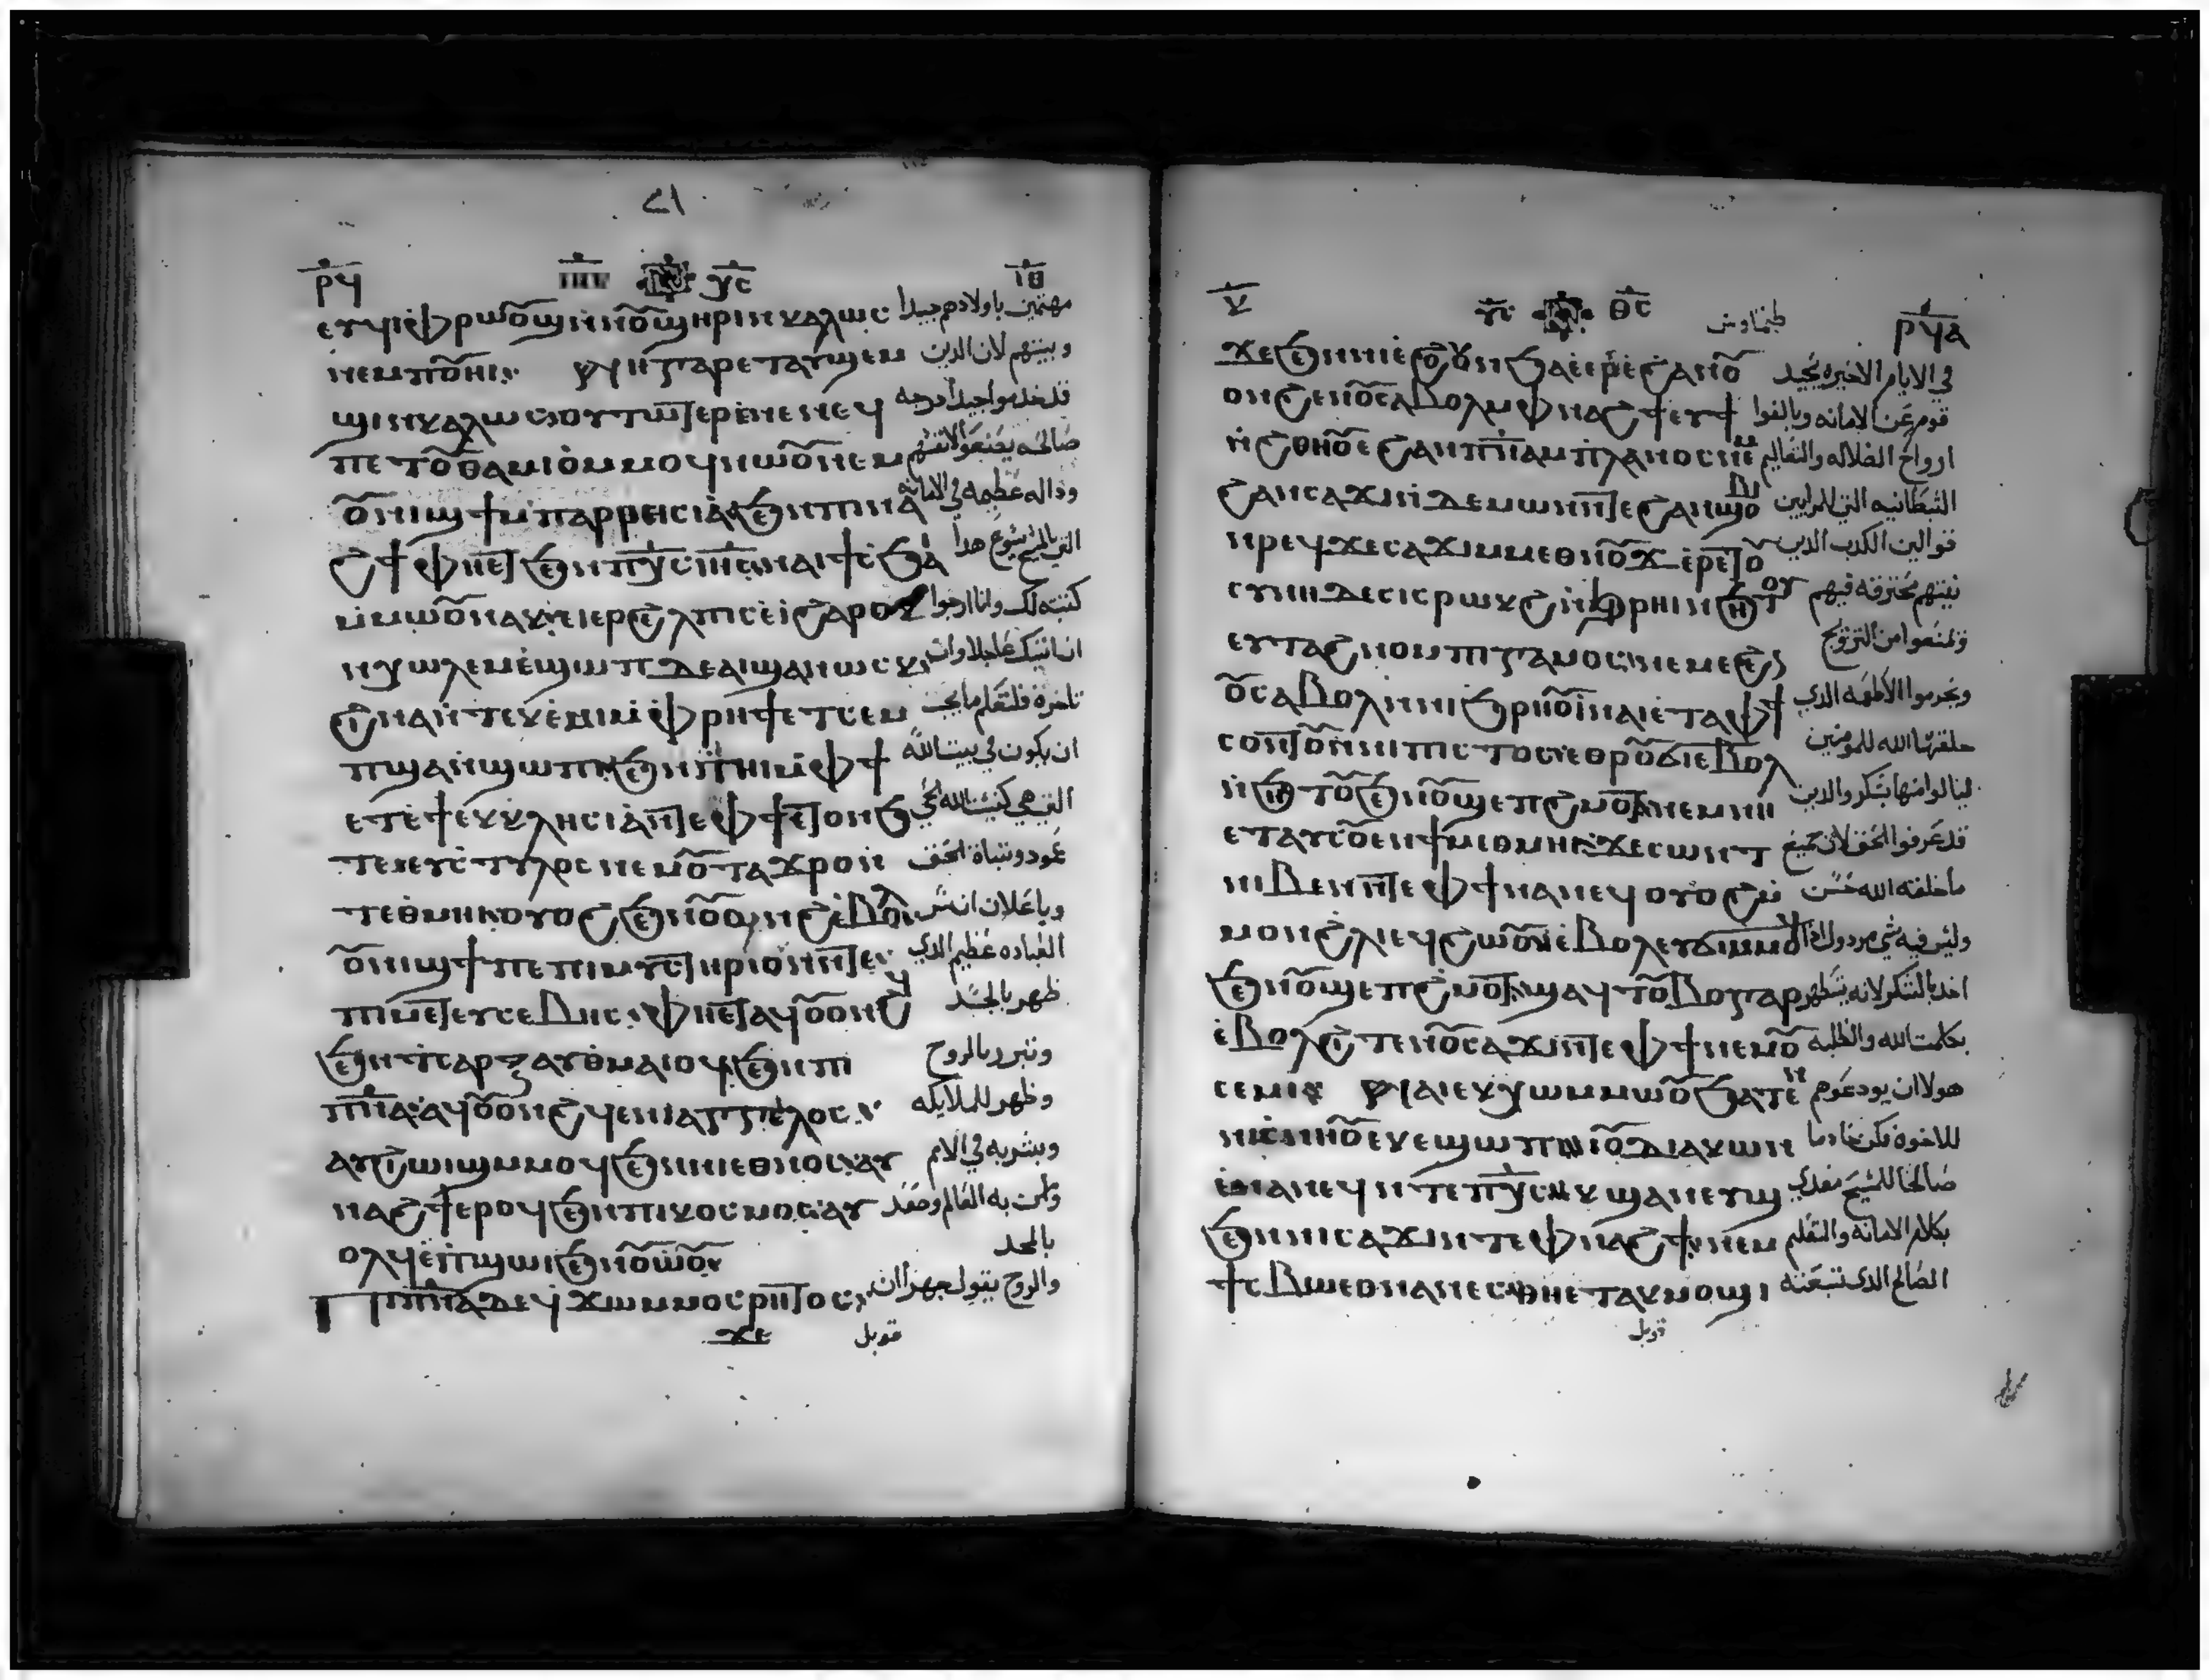 ⲣϥ ⲭⲥ ⲓⲑ
ⲉⲩϥⲓⲫⲣⲱⲟ̃ϣ ⲛⲛⲟ̃ϣⲏⲣⲓ ⲛⲕⲁⲗⲱⲥ مهتمين باولادهم جيدا
ⲛⲉⲙⲡⲟ̃ⲏⲓ ⲅⲁⲣ ⲉⲧⲁⲩϣⲉⲙ وبيتهم لان الدين
ϣⲓ ⲛⲕⲁⲗⲱⲥ ⲟⲩⲧⲱⲧⲉⲣ ⲉⲛⲉⲛⲉϥ قد خدموا جيدا درجه
ⲡⲉⲧⲟ̃ⲑⲁⲙⲓⲟ ⲙⲙⲟϥ ⲛⲱⲟ̃ ⲛⲉⲙ صالحه يصنعوا لانفسهم
ⲟ̃ⲛⲓϣϯ ⲙⲡⲁⲣⲣⲏⲥⲓⲁ ϧⲉⲛ ⲡⲓⲛⲁ وداله عظيمه في الامانه
ϩϯ ⲫⲏⲉⲧ ϧⲉⲛ ⲡⲭⲥ ⲓⲏⲥ ⲛⲁⲓ ϯⲥϧⲁⲓ التي بالمسيح يسوع هدا
ⲙⲙⲱⲟ̃ ⲛⲁⲕ ⲉⲓⲉⲣϩⲉⲗⲡⲓⲥ ⲉⲓ ϩⲁⲣⲟⲕ كتبته لك وانا ارجوا
ⲛⲭⲱⲗⲉⲙ ⲉϣⲱⲡ ⲇⲉ ⲁⲓϣⲁⲛⲱⲥⲕ ان اتيتك عاجلا وان
ϩⲓⲛⲁ ⲛⲧⲉⲕⲉⲙⲓ ⲙⲫⲣⲏϯ ⲉⲧⲥⲉⲙ تاخرة فلتعلم ما يجب
ⲡϣⲁ ⲛϣⲱⲡⲓ ϧⲉⲛ ⲡⲏⲓ ⲙⲫϯ ان يكون في بيت الله
ⲉⲧⲉ ϯⲉⲕⲕⲗⲏⲥⲓⲁ ⲛⲧⲉ ⲫϯ ⲉⲧⲟⲛϧ التي هي كنيسة الله الحي
ⲡⲓⲥⲧⲩⲗⲟⲥ ⲛⲉⲙ ⲟ̃ⲧⲁϫⲣⲟ ⲛ عمود وتباة الحق
ⲧⲉⲑⲙⲏⲓ ⲟⲩⲟϩ ϧⲉⲛ ⲟ̃ⲟⲩⲱⲛϩ ⲉⲃⲟⲗ وباعلان ان سر
ⲟ̃ⲛⲓϣϯ ⲡⲉ ⲡⲓⲙⲩⲥⲧⲏⲣⲓⲟⲛ ⲛⲧⲉ العباده عظيم الدي
ϯⲙⲉⲧⲉⲩⲥⲉⲃⲏⲥ ⲫⲏⲉⲧⲁϥⲟ̃ⲟⲛϩ ظهر بالجسد
ϧⲉⲛ ⲧⲥⲁⲣⲝ ⲁϥⲑⲙⲁⲓⲟϥ ϧⲉⲛ ⲡⲓ وتبرر بالروح
ⲡⲛⲁ ⲁϥⲟ̃ⲟⲛϩϥ ⲉⲛⲓⲁⲅⲅⲉⲗⲟⲥ وظهر للملايكه
ⲁⲩϩⲓⲱⲓϣ ⲙⲙⲟϥ ϧⲉⲛ ⲛⲓⲉⲑⲛⲟⲥ ⲁⲩ وبشر به في الامم
ⲛⲁϩϯ ⲉⲣⲟϥ ϧⲉⲛ ⲡⲓⲕⲟⲥⲙⲟⲥ ⲁⲩ وامن به العالم وصعد
ⲟⲗϥ ⲉⲡϣⲱⲓ ϧⲉⲛ ⲟ̃ⲱⲟ̃ بالمجد
ⲡⲓⲡⲛⲁ ⲇⲉ ϥϫⲱ ⲙⲙⲟⲥ ⲣⲏⲧⲟⲥ والروح يتول جهرا ان
ϫⲉ قوبل
ⲕ ⲩⲥ ⲑⲥ طيماوس ⲣϥⲁ
ϫⲉ ϧⲉⲛ ⲛⲓⲉϩⲟ̃ ⲛϧⲁⲉ ⲉⲣⲉ ϩⲁⲛⲟ̃ في الايام الاخيره يحيد
ⲟⲛ ϩⲉⲛⲟ̃ ⲥⲁⲃⲟⲗ ⲙⲫⲛⲁϩϯ ⲉⲩϯ قوم عن الامانه ويالفوا
ⲛϩⲑⲏⲟ̃ ⲉϩⲁⲛⲡⲛⲁ ⲙⲡⲗⲁⲛⲟⲥ ⲛⲉⲙ ارواح الضلاله والتعاليم
ϩⲁⲛⲥⲁϫⲓ ⲛⲇⲉⲙⲱⲛ ⲛⲧⲉ ϩⲁⲛϣⲟ الشيطانيه التي للمرايين
ⲛⲣⲉϥϫⲉⲥⲁϫⲓ ⲙⲙⲉⲑⲛⲟ̃ϫ ⲉⲣⲉ ⲧⲟ̃ قوالين الكدب الدين
ⲥⲩⲛⲏⲇⲉⲥⲓⲥ ⲣⲱⲕϩ ⲛϧⲣⲏⲓ ⲛϧⲏⲧⲟⲩ نيتهم محترقه فيهم
ⲉⲩⲧⲁϩⲛⲟ ⲙⲡⲓⲅⲁⲙⲟⲥ ⲛⲉⲙ ⲉϩⲉ ويمنعوا من التزويج
ⲟ̃ ⲥⲁⲃⲟⲗ ⲛⲛⲓϧⲣⲏⲟ̃ⲓ ⲛⲁⲓ ⲉⲧⲁ ⲫϯ ويحرموا الاطعمه الدي
ⲥⲟⲛⲧⲟ̃ ⲛⲛⲓⲡⲓⲥⲧⲟⲥ ⲉⲑⲣⲟ̃ϭⲓ ⲉⲃⲟⲗ خلقها الله للمومنين
ⲛϧⲏⲧⲟ̃ ϧⲉⲛ ⲟ̃ϣⲉⲡϩⲙⲟⲧ ⲛⲉⲙ ⲛⲏ لينالوا منها بشكر والدين
ⲉⲧⲁⲩⲥⲟ̃ⲉⲛ ϯⲙⲉⲑⲙⲏⲓ ϫⲉ ⲥⲱⲛⲧ قد عرفوا الحق لان جميع
ⲛⲓⲃⲉⲛ ⲛⲧⲉ ⲫϯ ⲛⲁⲛⲉϥ ⲟⲩⲟϩ ما خلقه الله حسن
ⲙⲙⲟⲛ ϩⲗⲓ ⲉϥϩⲱⲟ̃ⲓ ⲉⲃⲟⲗ ⲉⲩϭⲓ ⲙⲙⲟϥ وليس فيه شي مردول ادا
ϧⲉⲛ ⲟ̃ϣⲉⲡϩⲙⲟⲧ ϣⲁϥⲧⲟ̃ⲃⲟ ⲅⲁⲣ اخد بالشكر لانه يتطهر
ⲉⲃⲟⲗ ϩⲓⲧⲉⲛ ⲟ̃ⲥⲁϫⲓ ⲛⲧⲉ ⲫϯ ⲛⲉⲙ ⲟ̃ بكلمة الله والطلبه
ⲥⲉⲙⲓ ⲛⲁⲓ ⲉⲕⲭⲱ ⲙⲙⲱⲟ̃ ϧⲁⲧⲉⲛ هولا ان يودعوهم
ⲛⲓⲥⲛⲏⲟ̃ ⲉⲕⲉϣⲱⲡⲓ ⲛⲟ̃ⲇⲓⲁⲕⲱⲛ للاخوة فكن خادما
ⲉⲛⲁⲛⲉϥ ⲛⲧⲉ ⲡⲭⲥ ⲉⲕϣⲁⲛⲉⲩϣ صالحا للمسيح مغدي
ϧⲉⲛ ⲛⲓⲥⲁϫⲓ ⲛⲧⲉ ⲫⲛⲁϩϯ ⲛⲉⲙ بكلام الامانه والتعليم
ϯⲥⲃⲱ ⲉⲑⲛⲁⲛⲉⲥ ⲑⲏ ⲉⲧⲁⲕⲙⲟϣⲓ الصالح الدي تتبعته
قوبل